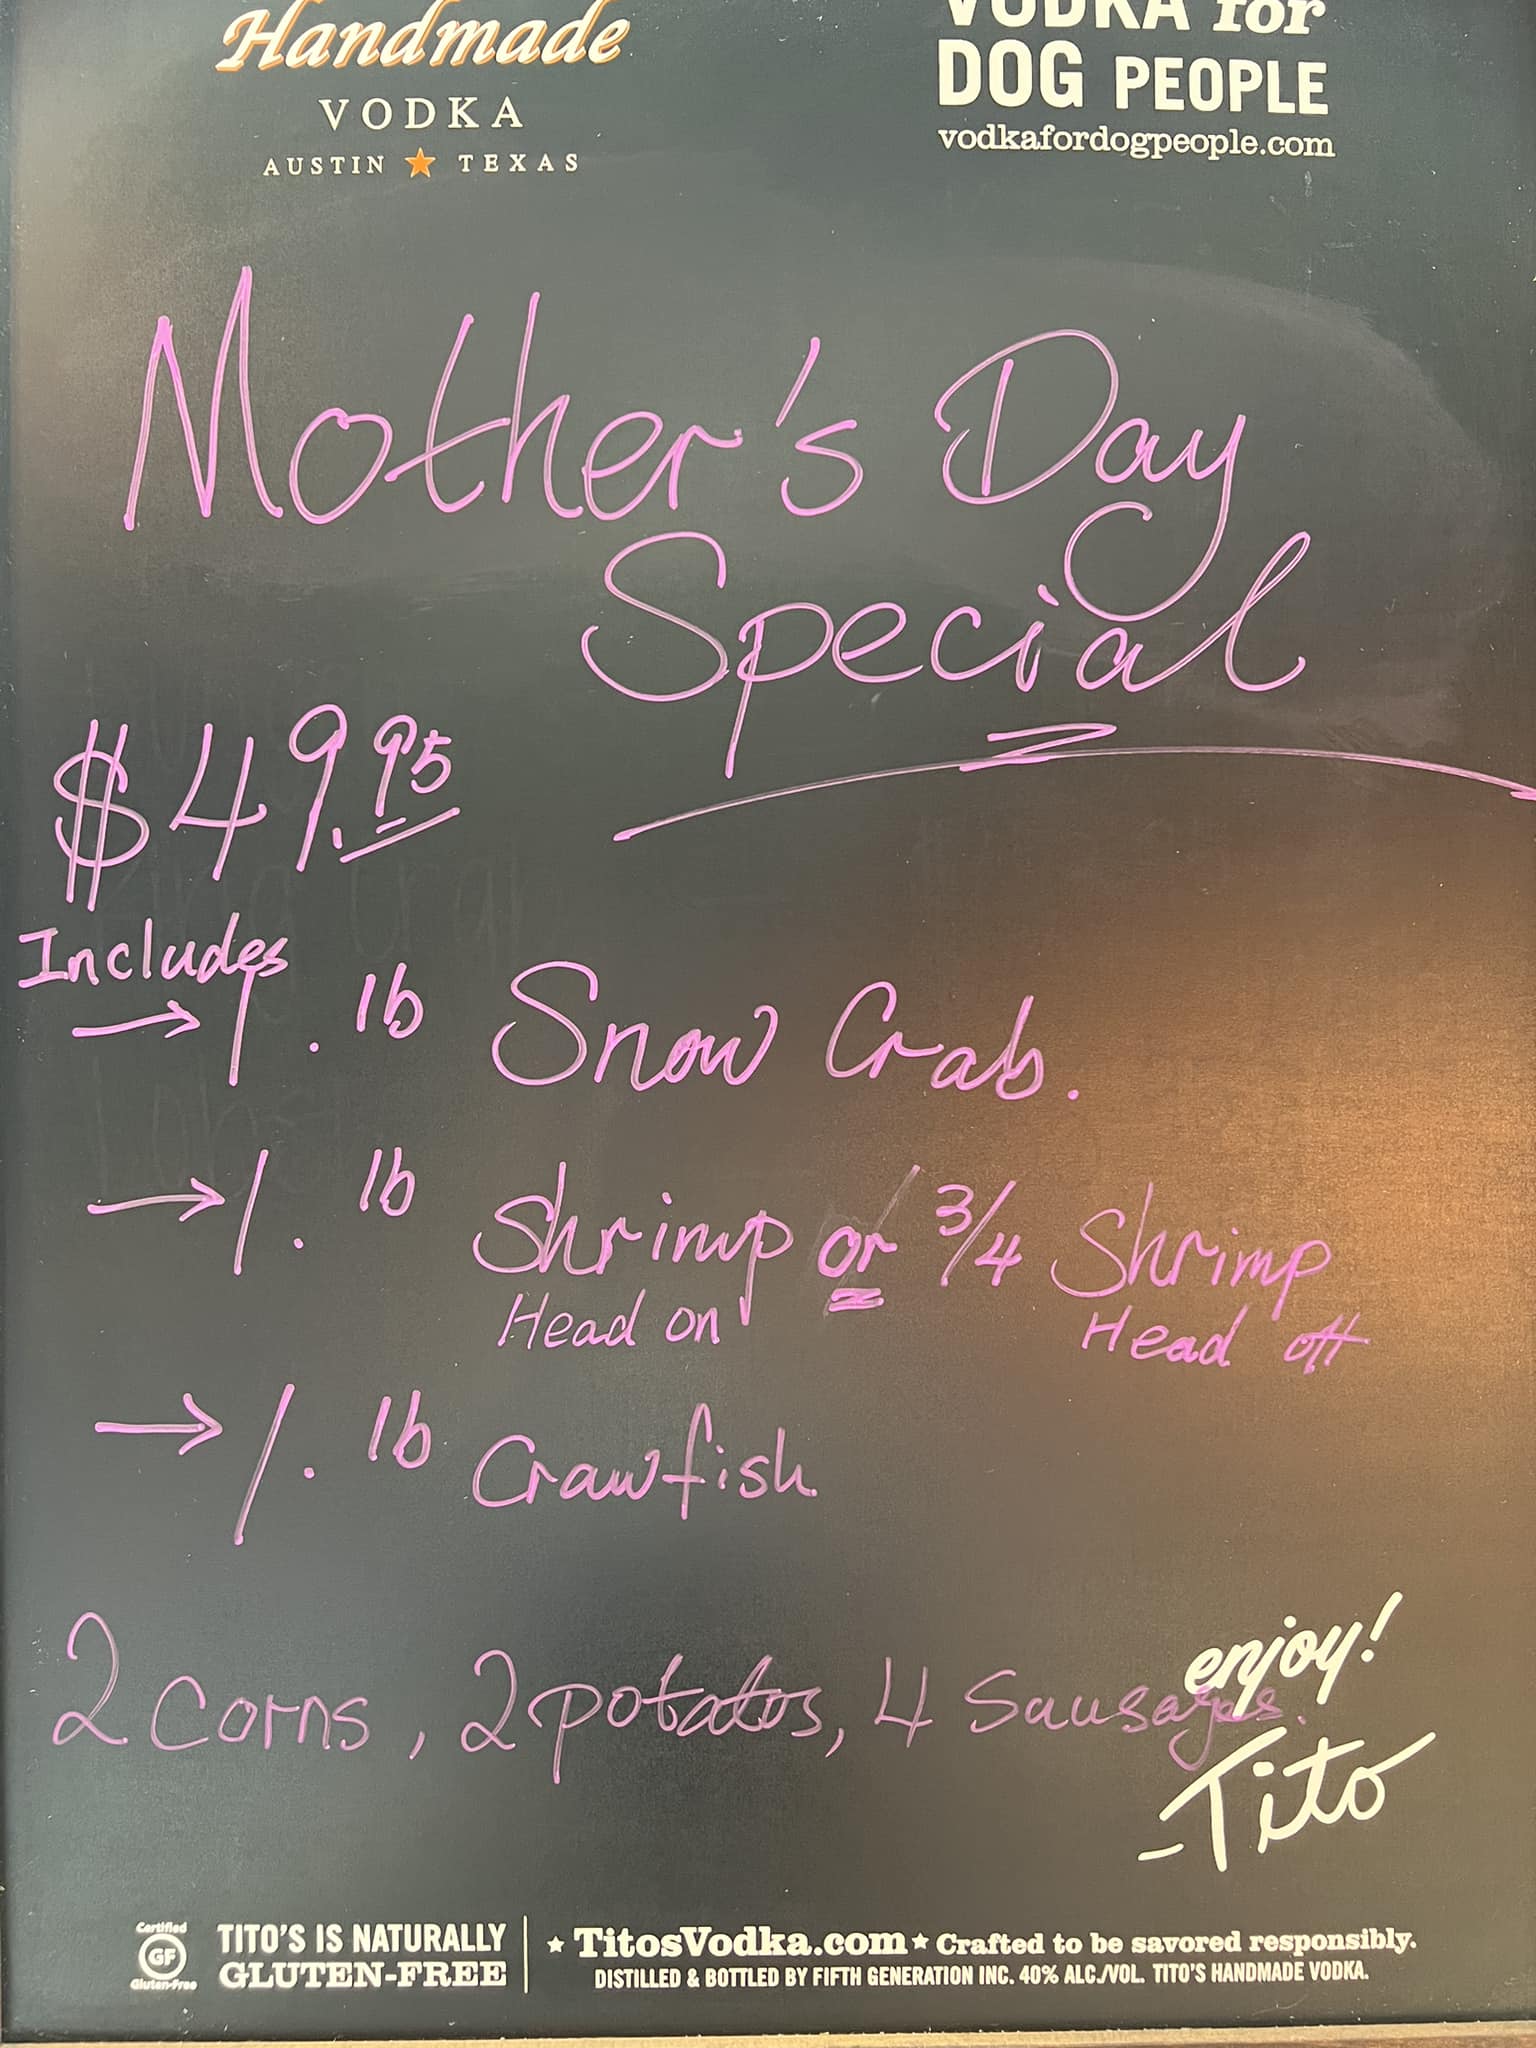 Handmade
VODKA
AUSTIN ★ TEXAS
VODKA for
DOG PEOPLE
vodkafordogpeople.com
Mother's Day
Special
$49.95
Includes
→ 1. lb Snow Crab.
→ 1. lb Shrimp or 3/4 Shrimp
Head on Head off
→ 1. lb Crawfish
2 Corns, 2 potatos, 4 Sausages.
enjoy!
-Tito
Certified
GF
Gluten-Free
TITO'S IS NATURALLY
GLUTEN-FREE
★ TitosVodka.com ★ Crafted to be savored responsibly.
DISTILLED & BOTTLED BY FIFTH GENERATION INC. 40% ALC./VOL. TITO'S HANDMADE VODKA.